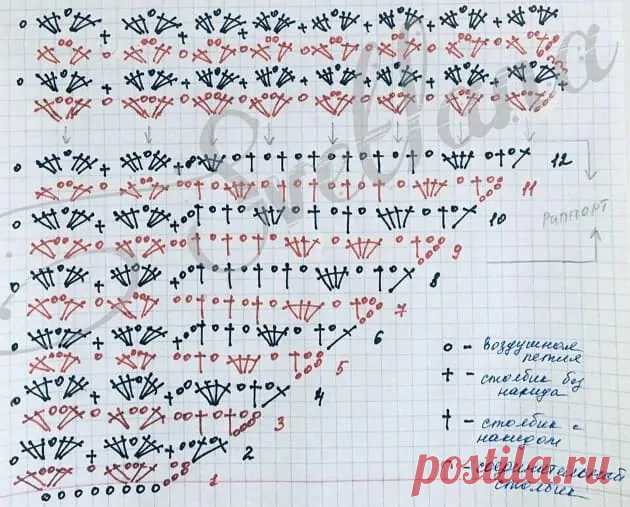 Svetlana
12
11
10
Раппорт
9
8
7
6
5
4
3
2
1
о - воздушная
петля
+ - столбик без
накида
† - столбик с
накидом
- соединительный
столбик
postila.ru